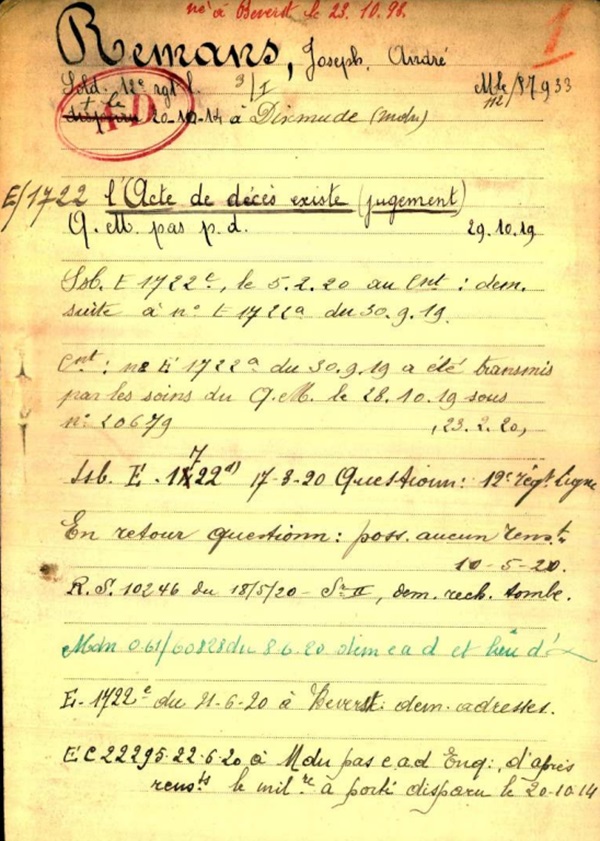 né à Beverst le 23.10.98.
1
Remans, Joseph. André
Sold. 12e rgt l. 3/I Mle 112/87933
+ le
disparu 20-10-14 à Dixmude (mdn)
E/1722 l'Acte de décès existe (jugement)
Q.M. pas p.d. 29.10.19
Ssb. E 1722c, le 5.2.20 au Cnt : dem.
suite à no E 1722a du 30.9.19.
Cnt : no E 1722a du 30.9.19 a été transmis
par les soins du Q.M. le 28.10.19 sous
no 20679 , 23.2.20,
7
Ssb. E. 1722d) 17-3-20 Questionn: 12e régt ligne
En retour questionn: poss. aucun renst.
10-5-20.
R.S. 10246 du 18/5/20 - Sn II, dem. rech. tombe.
Mdn 061/60828 du 8 6.20 dem e a d et lieu d'
E-1722e du 21-6-20 à Beverst: dem. adresses.
EC 22295 22-6-20 à Mdn pas e.a.d Enq:, d'après
rensts le milre a porté disparu le 20-10-14